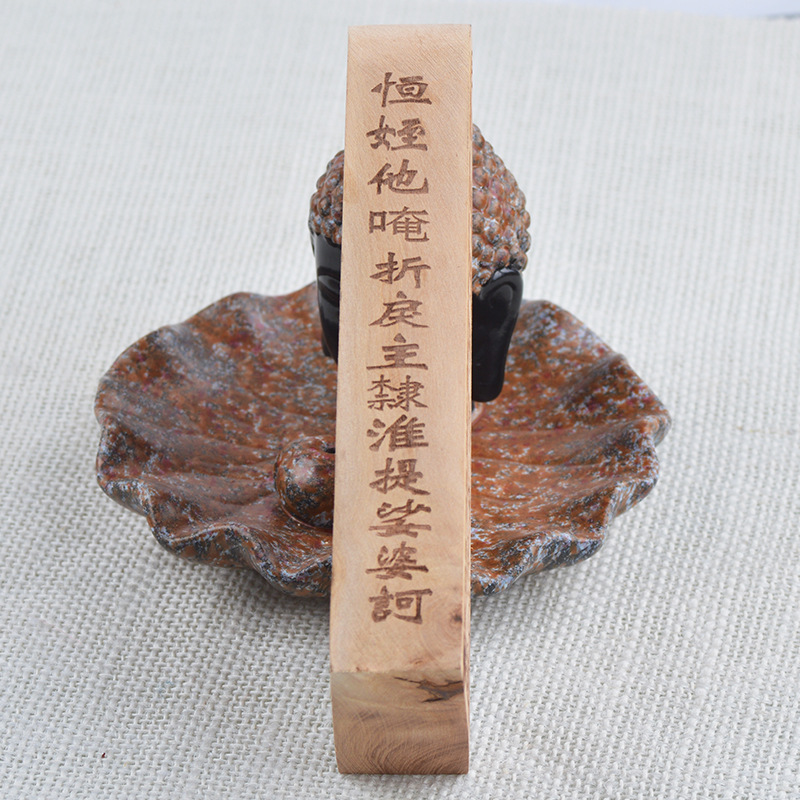 恒姪他唵折戾主隸淮提娑婆訶